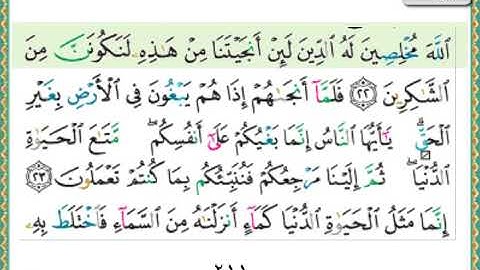 ٱللَّهَ مُخْلِصِينَ لَهُ ٱلدِّينَ لَئِنْ أَنجَيْتَنَا مِنْ هَـٰذِهِۦ لَنَكُونَنَّ مِنَ
ٱلشَّـٰكِرِينَ ﴿٢٢﴾ فَلَمَّآ أَنجَىٰهُمْ إِذَا هُمْ يَبْغُونَ فِى ٱلْأَرْضِ بِغَيْرِ
ٱلْحَقِّ ۗ يَـٰٓأَيُّهَا ٱلنَّاسُ إِنَّمَا بَغْيُكُمْ عَلَىٰٓ أَنفُسِكُم ۖ مَّتَـٰعَ ٱلْحَيَوٰةِ
ٱلدُّنْيَا ۖ ثُمَّ إِلَيْنَا مَرْجِعُكُمْ فَنُنَبِّئُكُم بِمَا كُنتُمْ تَعْمَلُونَ ﴿٢٣﴾
إِنَّمَا مَثَلُ ٱلْحَيَوٰةِ ٱلدُّنْيَا كَمَآءٍ أَنزَلْنَـٰهُ مِنَ ٱلسَّمَآءِ فَٱخْتَلَطَ بِهِۦ
٢١١